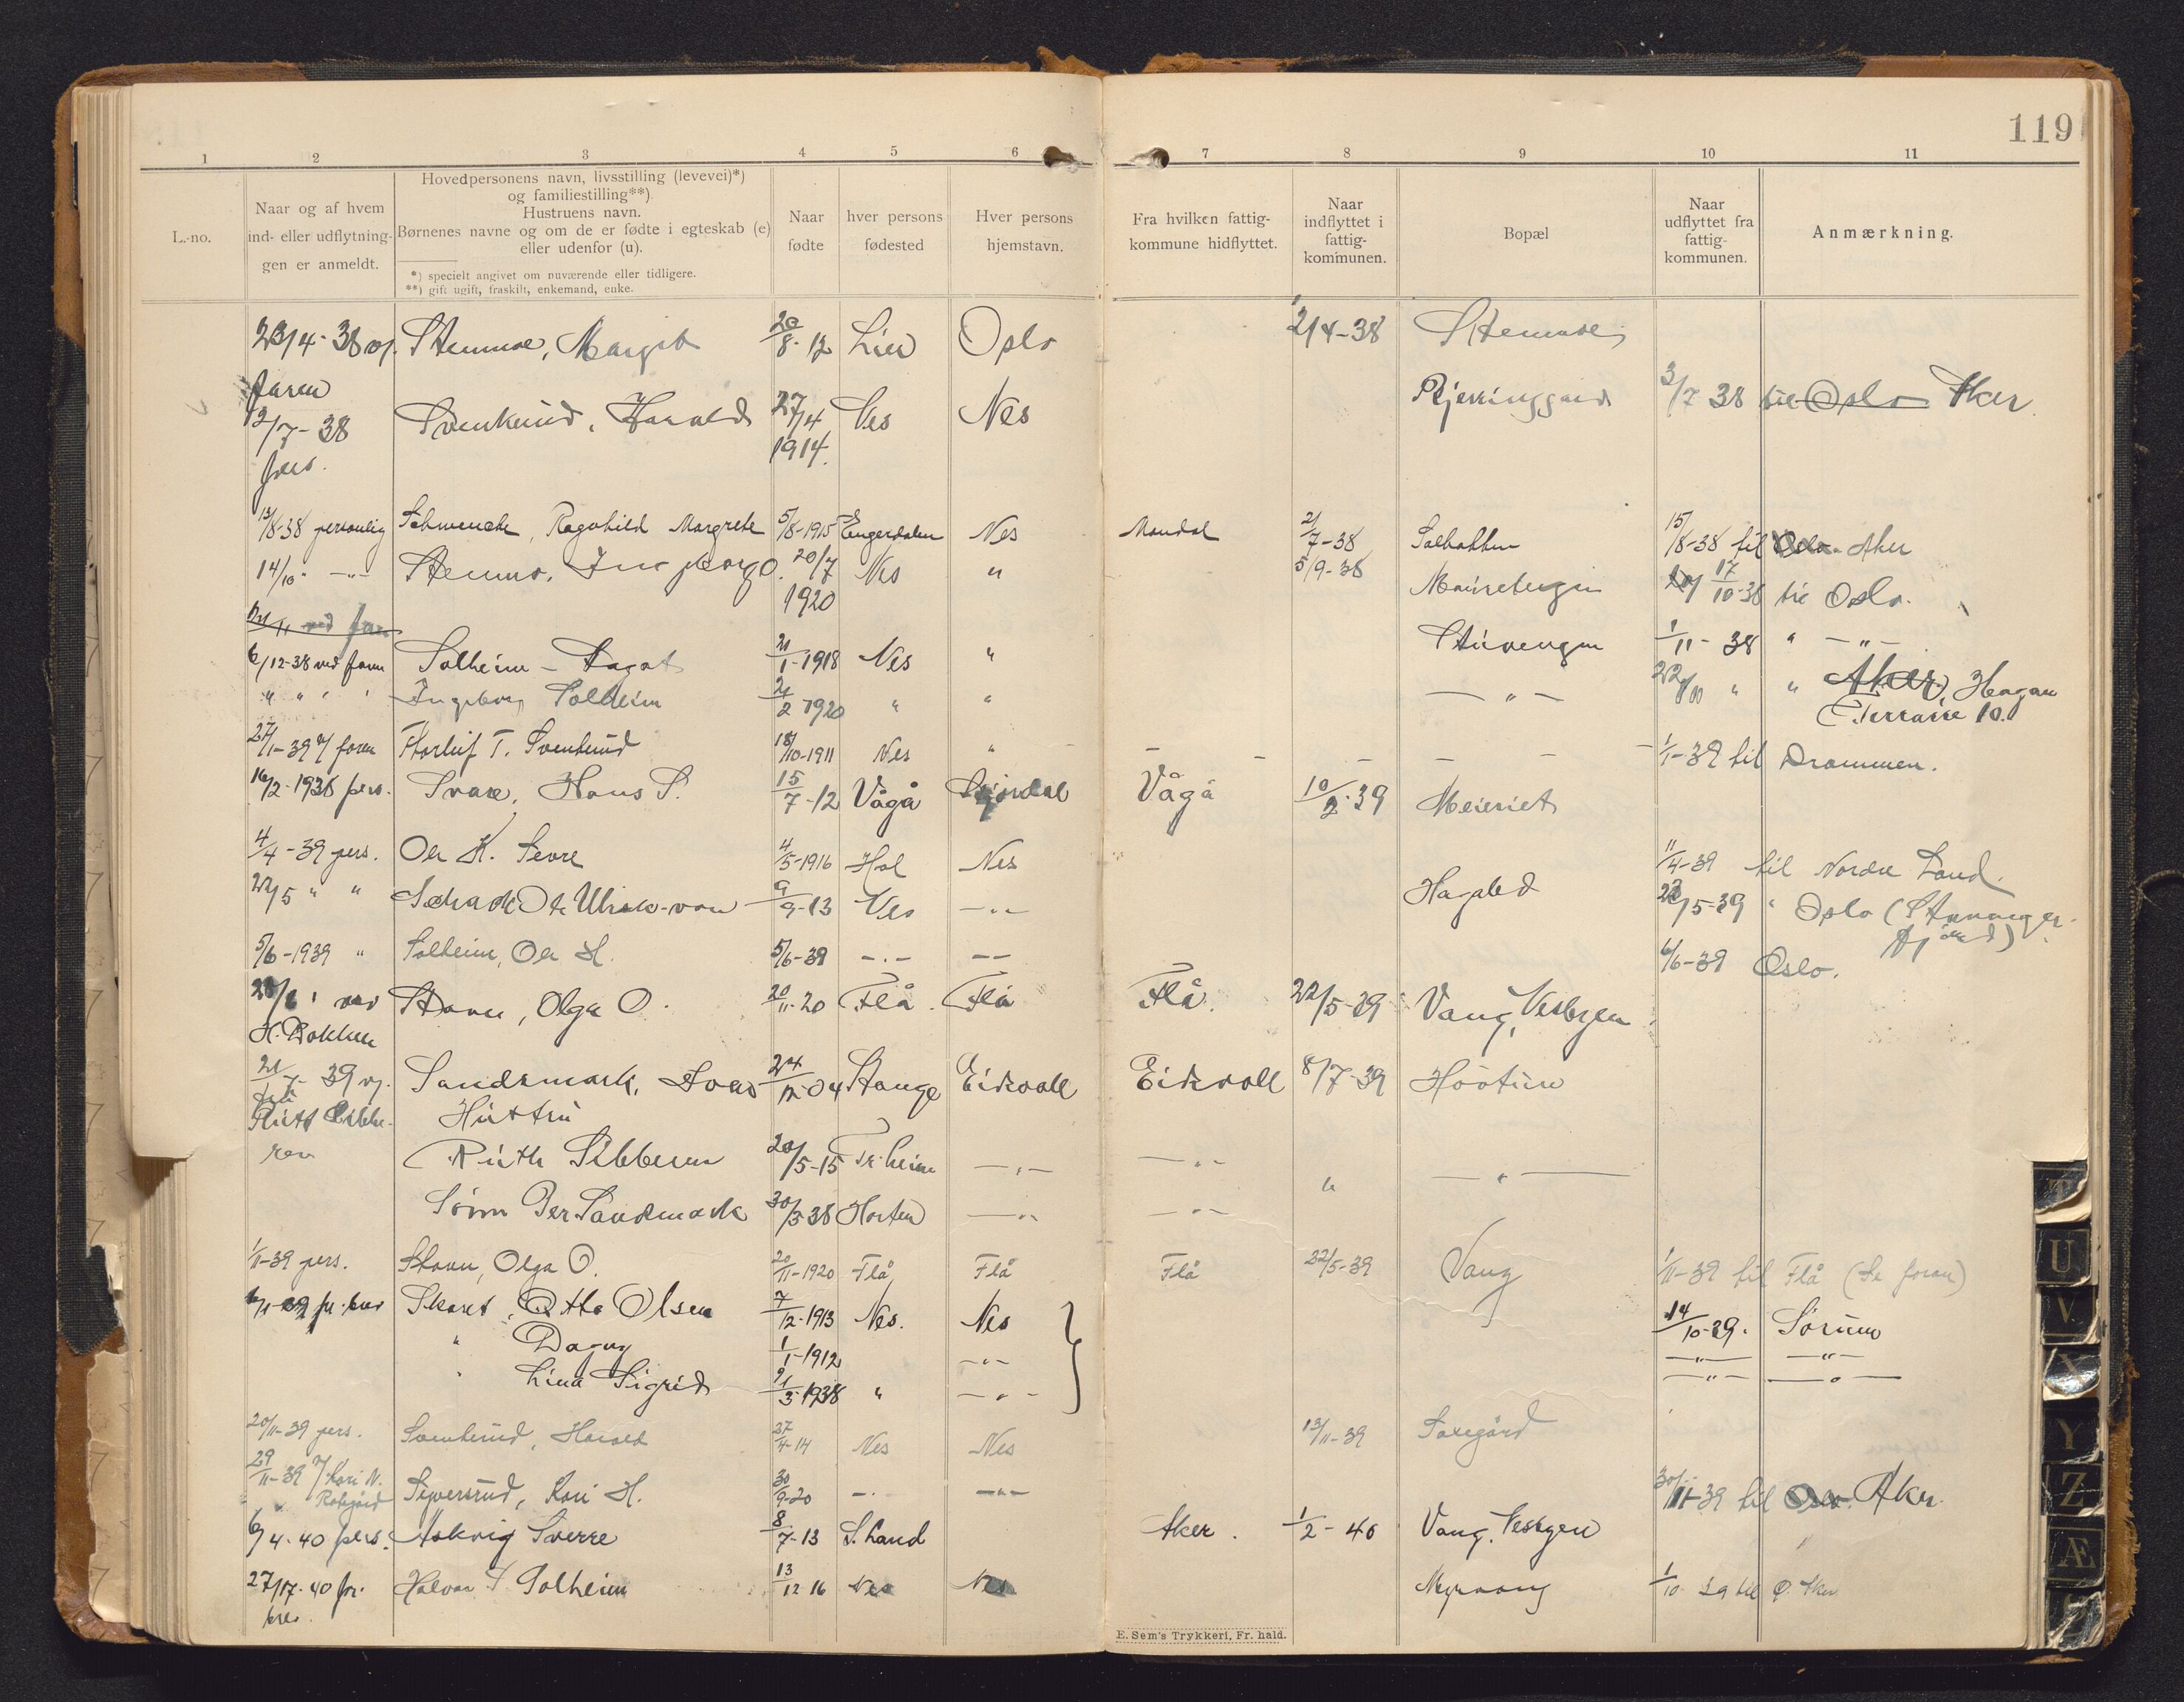 119
1 2 3 4 5 6 7 8 9 10 11
L.-no.
Naar og af hvem
ind- eller udflytnin-
gen er anmeldt.
Hovedpersonens navn, livsstilling (levevei)*)
og familiestilling**)
Hustruens navn.
Børnenes navne og om de er fødte i egteskab (e)
eller udenfor (u).
*) specielt angivet om nuværende eller tidligere.
**) gift ugift, fraskilt, enkemand, enke.
Naar
fødte
hver persons
fødested
Hver persons
hjemstavn.
Fra hvilken fattig-
kommune hidflyttet.
Naar
indflyttet i
fattig-
kommunen.
Bopæl
Naar
udflyttet fra
fattig-
kommunen.
Anmærkning.
23/4-38 Margit 20/8-12 Lier Oslo 2/4-38
faren
12/7-38 Harald 27/4 1914. Nes Nes 3/7 38 til Oslo Aker
pers.
13/8-38 personlig Schwencke, Ragnhild Margrete 5/8-1915 Engerdalen Nes Mandal 21/7-38 15/8-38 til Oslo Aker
14/10 -"- Ingeborg O. 20/7 1920 Nes " 5/9-38 17/10-38 til Oslo.
6/12-38 ved faren Solheim - 21/1-1918 Nes " 1/11-38 " -"-
" " " " Ingeborg Solheim 21/2 1920 " " -"- " " Aker, Hagan
Terrasse 10.
27/1-39 v/ faren Thorleif T. Svenkerud 18/10-1911 Nes " - - - - 1/1-39 til Drammen.
16/2-1938 pers. Svare, Hans S. 15/7-12 Vågå Vågå 10/2-39 Meieriet
4/4-39 pers. Ole K. Sevre 4/5-1916 Hol Nes 11/4-39 til Nordre Land.
22/5 " " Schack Ole Ulrik von 9/9-13 Nes -"- Hagaled 22/5-39 " Oslo (Stavanger-
fjord)
5/6-1939 " Solheim, Ole H. 5/6-39 -"- -"- 6/6-39 Oslo.
ved Stavn, Olga O. 20/11-20 Flå. Flå Flå. 22/5-39 Vang, Nesbyen
H. Bokken
39 v. Sandsmark, 24/12-04 Stange Eidsvoll Eidsvoll 8/7-39
fru
Ruth Sibbe- Hustru
ren Ruth Sibberen 20/5-15 Tr.heim -"- -"- " -"-
Sønn Per Sandsmark 30/3-38 Horten -"- -"-
1/11-39 pers. Stavn, Olga O. 20/11-1920 Flå Flå Flå 22/5-39 Vang 1/11-39 til Flå (Se foran)
6/11-39 pr. brev Skaret, Otto Olsen 7/12-1913 Nes. Nes 14/10-39. Sørum
" Dagny 1/1-1912 -"- -"- -"-
" Lina Sigrid 21/3-1938 " -"- -"- -"-
20/11-39 pers. Svenkerud, Harald 27/4-14 Nes Nes 13/11-39
29/11-39 v/ Kari N. Sewersrud, Kari H. 30/9-20 -"- -"- 30/11-39 til Oslo. Aker.
6/4-40 pers. Askvig Sverre 8/7-13 S. Land Aker. 1/2-40 Vang, Nesbyen
27/17-40 pr. Halvor T. Solheim 13/12 16 Nes Nes Myrvang 1/10 39 til Ø. Aker
brev.
E. Sem's Trykkeri, Fr. hald.
U
V
X
Y
Z
Æ